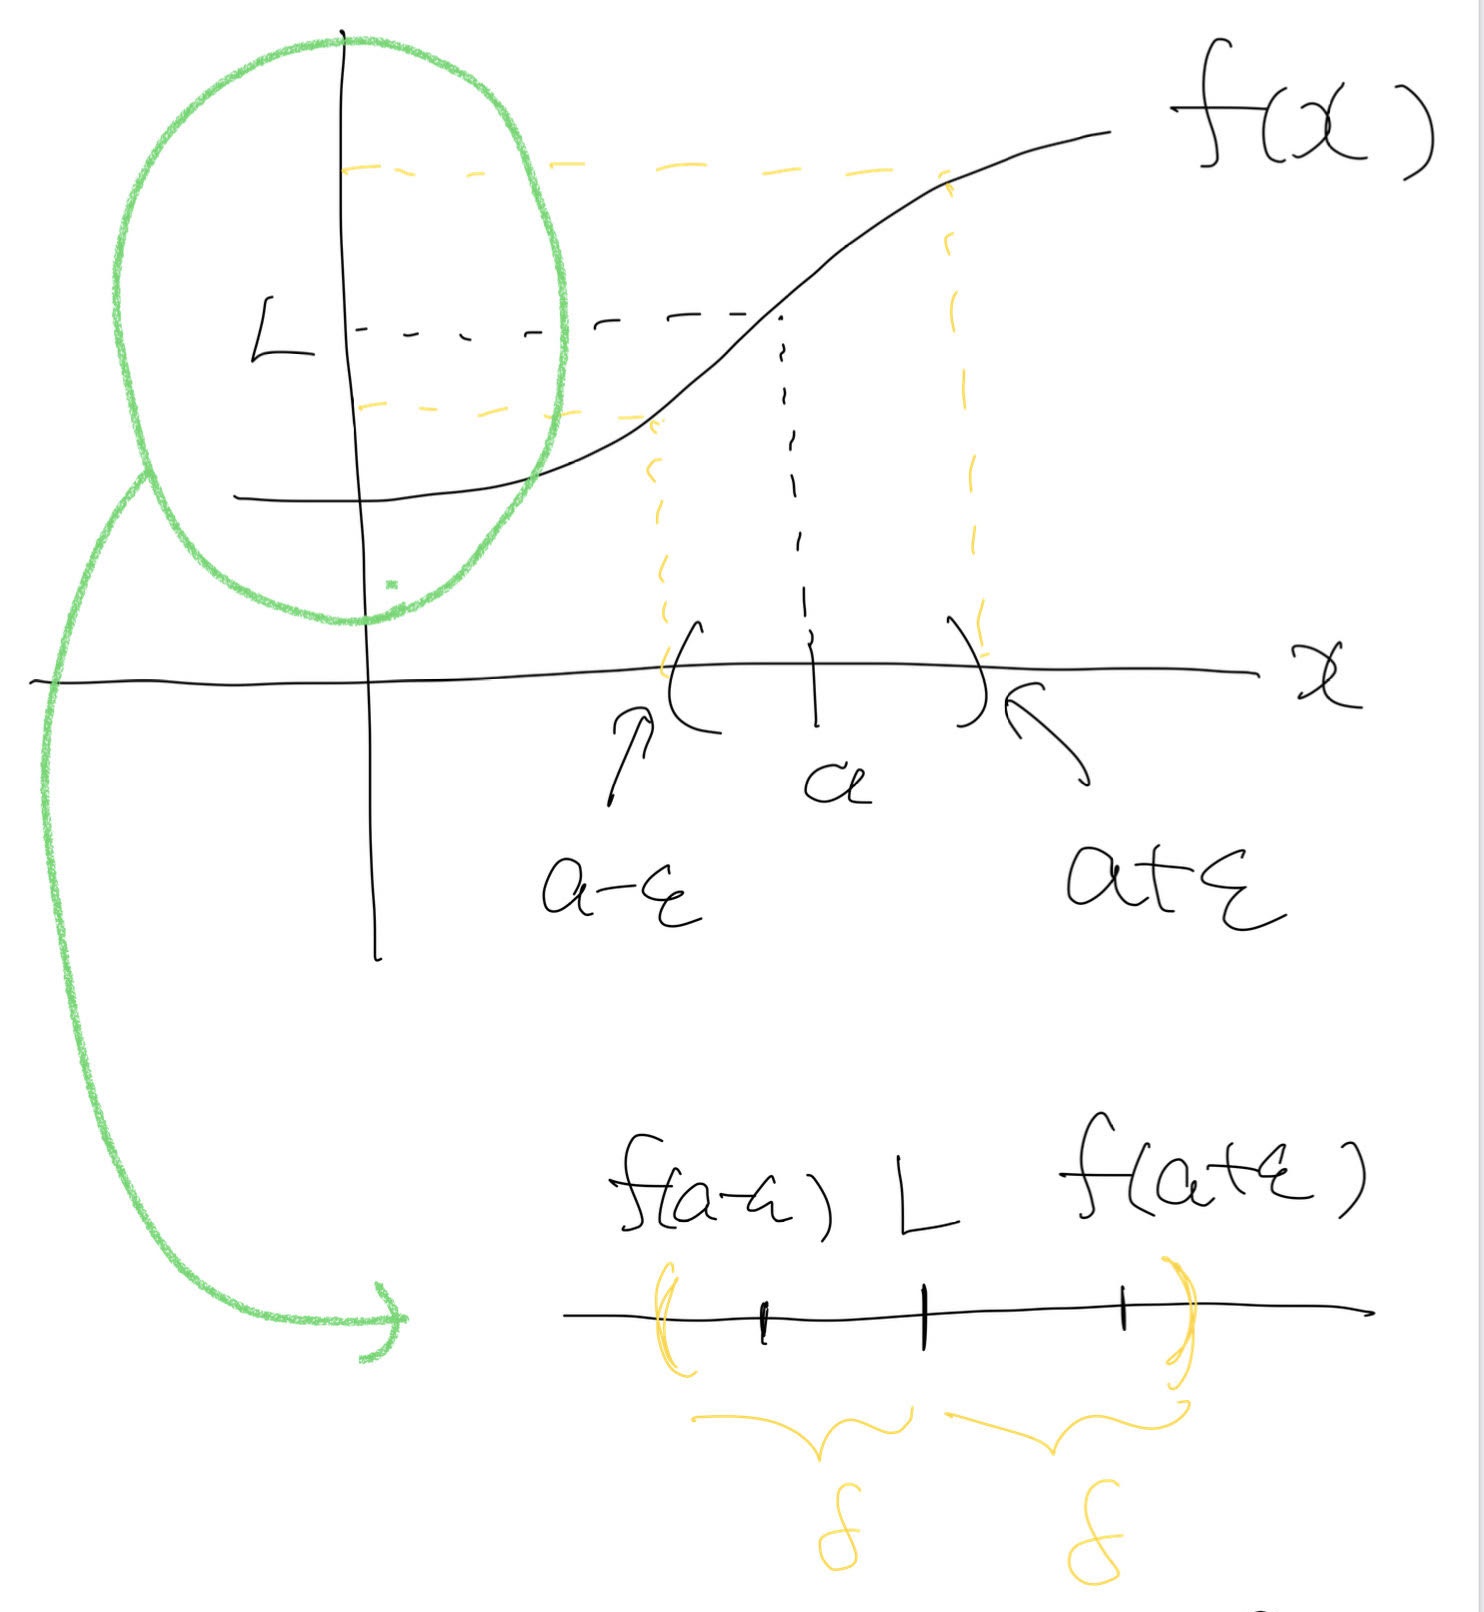 f(x)
L
x
a
a-ε a+ε
f(a-ε) L f(a+ε)
δ δ